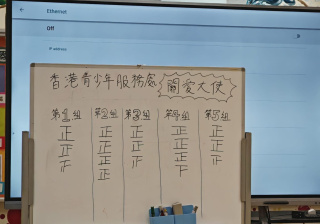 Ethernet
Off
IP address
香港青少年服務處 關愛大使
第1組 第2組 第3組 第4組 第5組
正 正 正 正 正
正 正 正 正 正
正 正 正 正 正
正 正